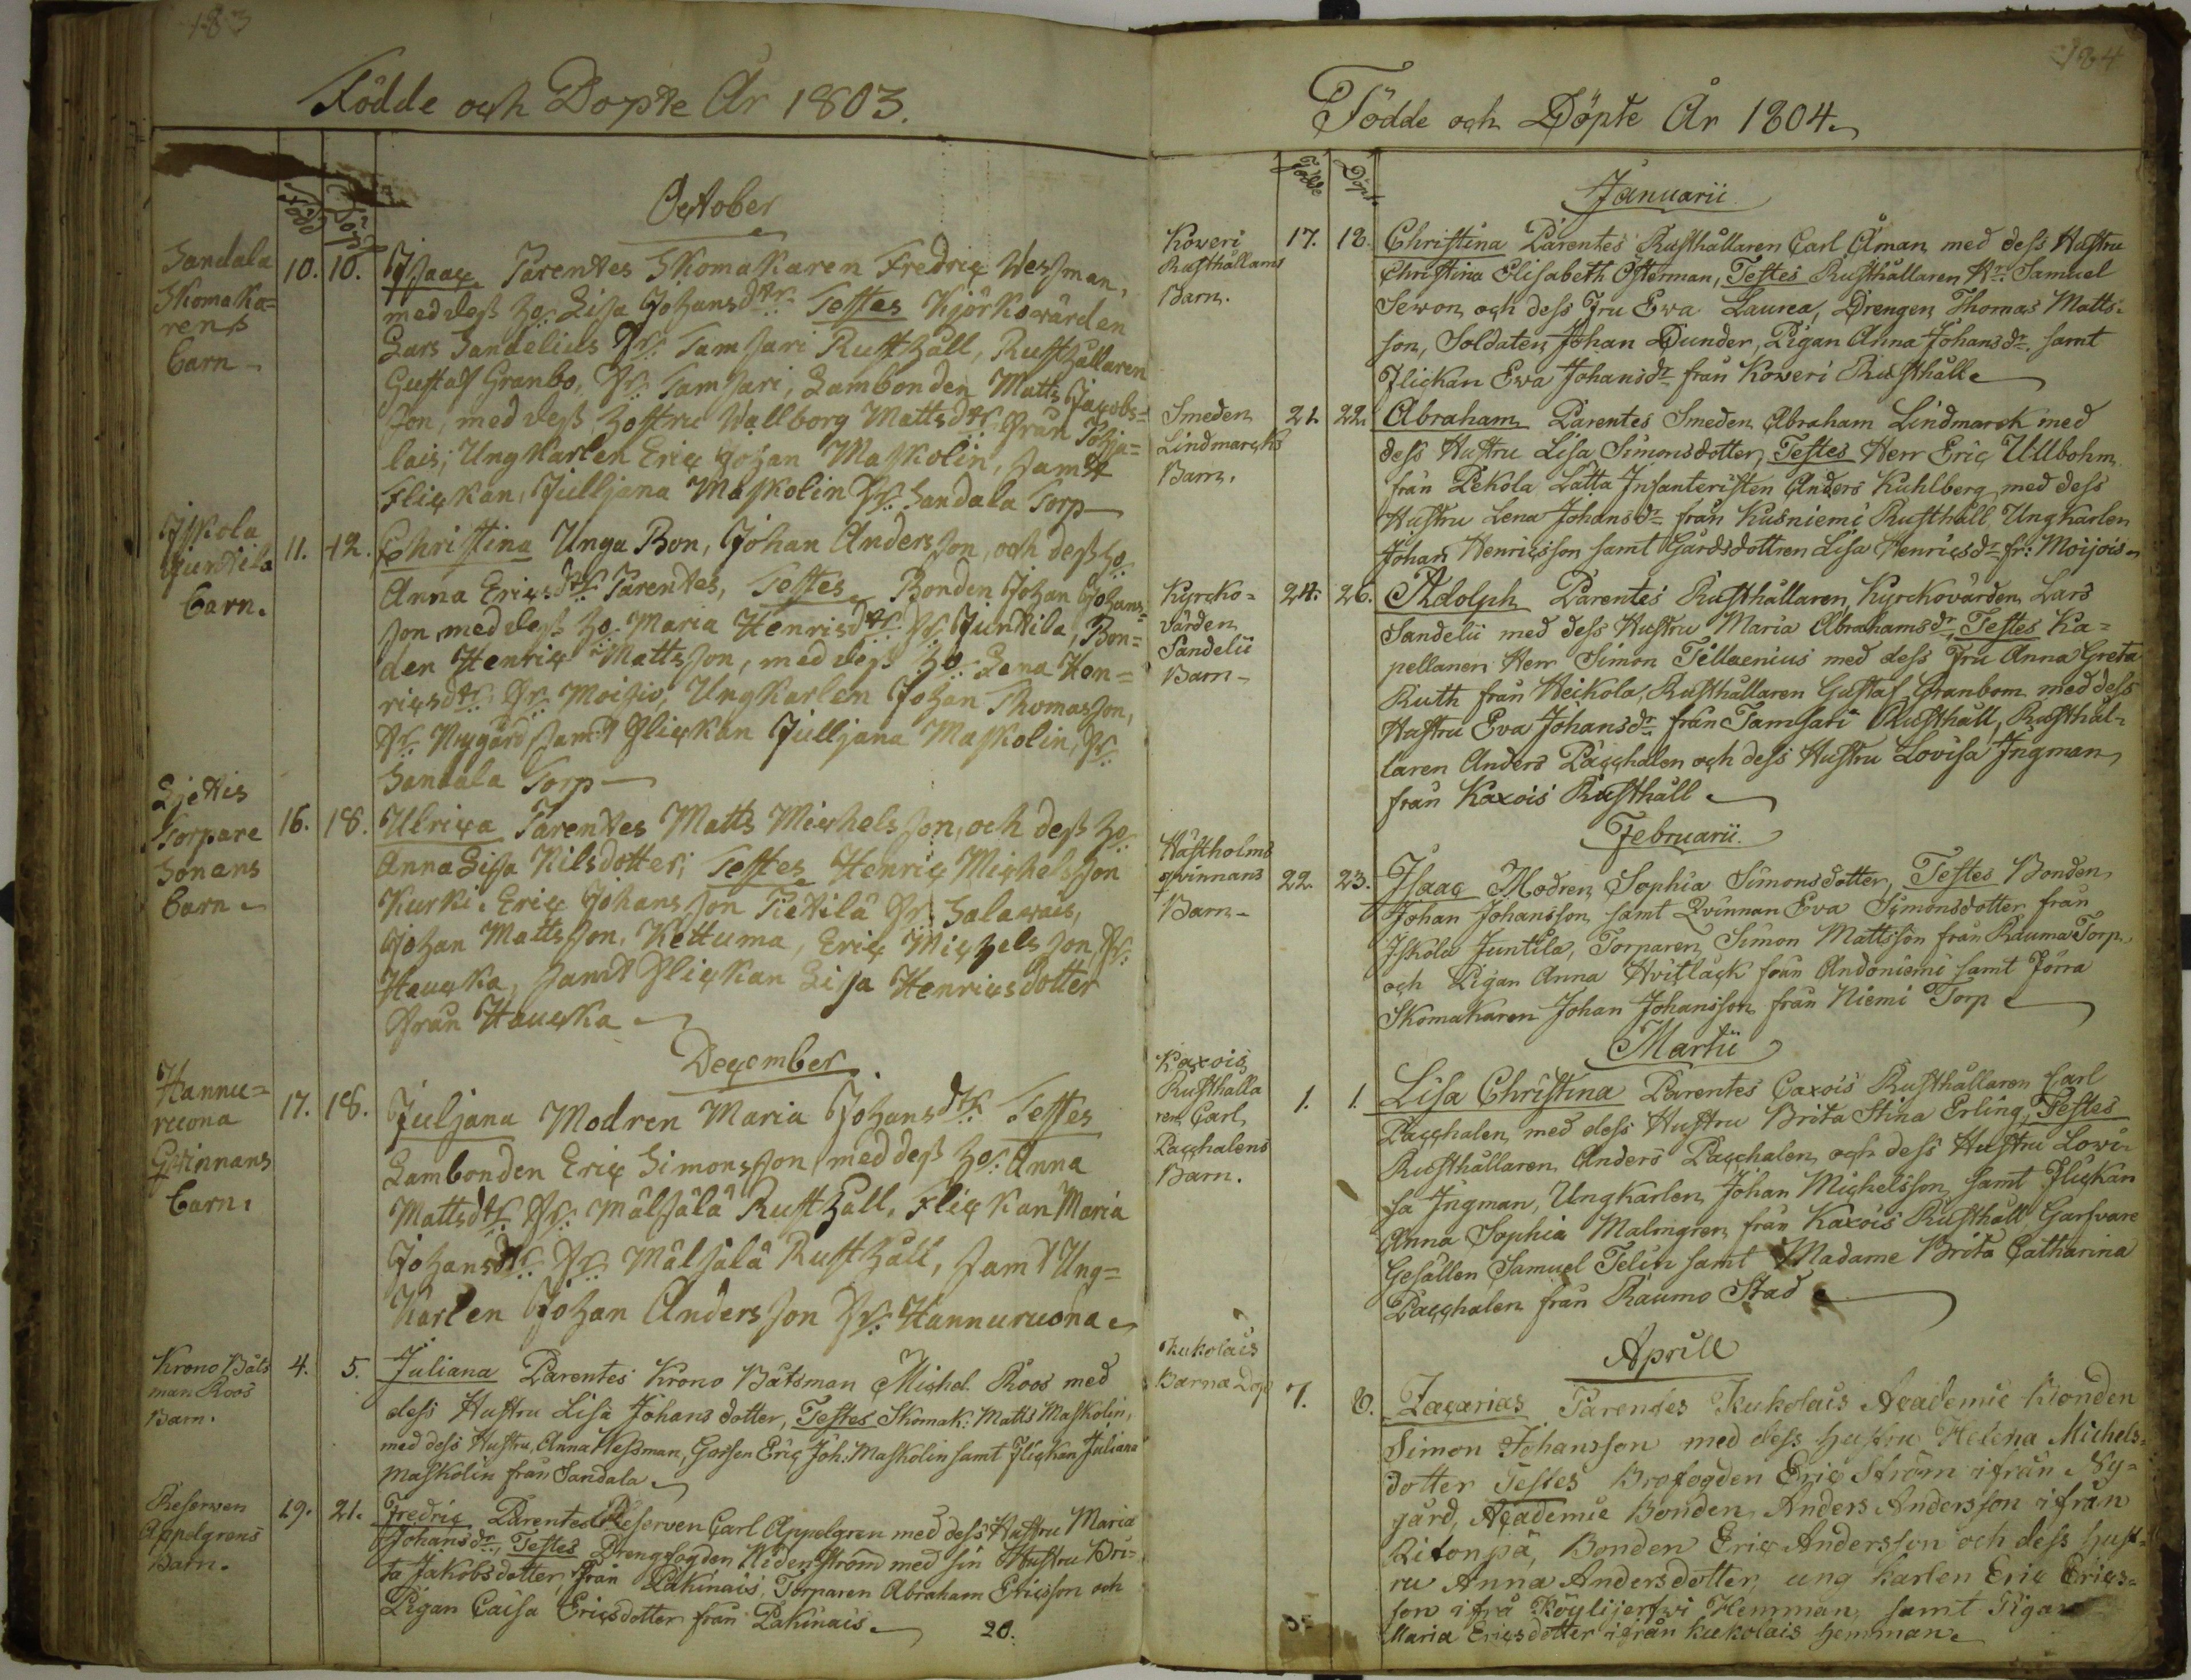 183
Födde och Dopte År 1803.
Född
Döpt
October
Sandala
Skomaka=
rens
barn
10. 10.
Isaac Parentes Skomakaren Fredric Wessman,
med dess Ho. Lisa Johansdtr. Testes Kjörkowärden
Lars Sandelius fr. Tamsari Rusthåll, Rusthållaren
Gustaf Granbo, fr. Tamsari, Lambonden Matts Jacobs=
son, med dess Hostru Wallborg Mattsdtr från Pohja=
lais, Ungkarlen Eric Johan Maskolin, samt
Flickan, Julljana Maskolin fr. Sandala Torp
Iskola
Juntila
barn.
11. 12.
Christina Unga Bon, Johan Andersson, och dess Ho
Anna Ericsdtr Parentes, Testes Bonden Johan Johans=
son med dess Ho. Maria Henrisdtr fr. Juntila, Bon=
den Henric Mattsson, med dess Ho Lena Hen=
ricsdtr fr. Moisio, Ungkarlen Johan Thomasson,
fr. Nygård samt Flickan Julljana Maskolin, fr
Sandala Torp
Torpare
Sonans
barn
16. 18.
Ulrica Parentes Matts Michelsson, och dess Ho
Anna Lisa Nilsdotter, Testes Henric Michelsson
Kurki. Eric Johansson Pietilä fr. Salawais,
Johan Mattsson, Kettuma, Eric Michelsson, fr.
Haucka, samt Flickan Lisa Henricsdotter
från Haucka
December
Hannu=
ruona
Qwinnans
barn.
17. 18.
Juljana Modren Maria Johansdtr Testes
Lambonden Eric Simonsson, med dess Ho. Anna
Mattsdtr fr. Mälsälä Rusthåll, Flickan Maria
Johansdtr fr. Mälsälä Rusthåll, samt Ung=
karlen Johan Andersson fr. Hannuruona
Krono Båts
man Roos
Barn.
4. 5.
Juliana Parentes Krono Båtsman Michel Roos med
dess Hustru Lisa Johans dotter, Testes Skomak: Matts Maskolin,
med dess Hustru, Anna Wessman, Gossen Eric Joh: Maskolin samt Flickan Juliana
Maskolin från Sandala
Reserven
Appelgrens
Barn.
19. 21.
Fredric Parentes Reserven Carl Appelgren med dess Hustru Maria
Johansdr, Testes Drengfogden Widenström med sin Hustru Bri=
ta Jakobsdotter, från Pakinais, Torparen Abraham Ericsson och
Pigan Caisa Ericsdotter från Pakinais
20.
184
Födde och Döpte År 1804.
Födde
Döpt.
Januarii
Koweri
Rusthållans
Barn.
17. 18.
Christina Parentes Rusthållaren Carl Åman med dess Hustru
Christina Elisabeth Österman, Testes Rusthållaren Hr. Samuel
Sewon och dess Fru Ewa Laurea, Drengen Thomas Matts-
son, Soldaten Johan Dunder, Pigan Anna Johansdr. samt
Flickan Ewa Johansdr från Koweri Rusthåll
Smeden
Lindmarcks
Barn.
21. 22.
Abraham Parentes Smeden Abraham Lindmarck med
dess Hustru Lisa Simonsdotter, Testes Herr Eric Ullbohm
från Pekola Lätta Infanteristen Anders Kuhlberg med dess
Hustru Lena Johansdr från Kusniemi Rusthåll Ungkarlen
Johan Henricsson samt Gårdsdottren Lisa Henricsdr fr: Moijois
Kyrcko=
värden
Sandelii
Barn
24. 26.
Adolph Parentes Rusthållaren Kyrckovärden Lars
Sandelii med dess Hustru Maria Abrahamsdr, Testes Ka=
pellanen Herr Simon Tillaenius med dess Fru Anna Greta
Ruth från Heikola, Rusthållaren Gustaf Granbom med dess
Hustru Eva Johansdr från Tamsari Rusthåll, Rusthål-
laren Anders Pacchalen och dess Hustru Lovisa Ingman
från Kaxois Rusthåll
Februarii
Hästholms
qwinnans
Barn
22. 23.
Isaac Modren Sophia Simonsdotter, Testes Bonden
Johan Johansson samt Qvinnan Eva Symonsdotter från
Iskola Juntila, Torparen Simon Mattsson från Rauma Torp
och Pigan Anna Hvitlack från Andoniemi samt Förra
Skomakaren Johan Johansson från Niemi Torp
Martii
Kaxois
Rusthålla
ren Carl
Pacchalens
Barn.
1. 1.
Lisa Christina Parentes Caxois Rusthållaren Carl
Pacchalen med dess Hustru Brita Stina Erling, Testes
Rusthållaren Anders Pacchalen och dess Hustru Lowi-
sa Ingman, Ungkarlen Johan Michelsson samt Flickan
Anna Sophia Malmgren från Kaxois Rusthåll Garfvare
Gesällen Samuel Telin samt Madame Brita Catharina
Pacchalen från Raumo Stad
Aprill
Kukolais
Barna Dop
7. 8.
Zacarias Parentes Kukolais Academie Bonden
Simon Johansson med dess hustru Helena Michels=
dotter Testes Brofogden Eric Ström ifrån Ny=
gård, Academie Bonden Anders Andersson ifrån
Ritonpä, Bonden Eric Andersson och dess hust=
ru Anna Andersdotter, ung karlen Eric Erics=
son ifrå Köylijerfwi Hemman, samt Pigan
Maria Ericsdotter ifrån Kukolais hemman